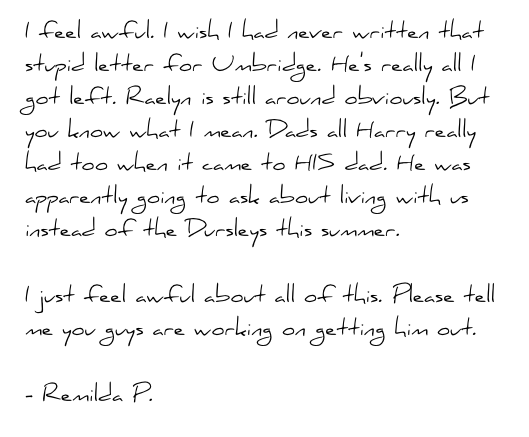 I feel awful. I wish I had never written that
stupid letter for Umbridge. He's really all I
got left. Raelyn is still around obviously. But
you know what I mean. Dads all Harry really
had too when it came to HIS dad. He was
apparently going to ask about living with us
instead of the Dursleys this summer.

I just feel awful about all of this. Please tell
me you guys are working on getting him out.

- Remilda P.